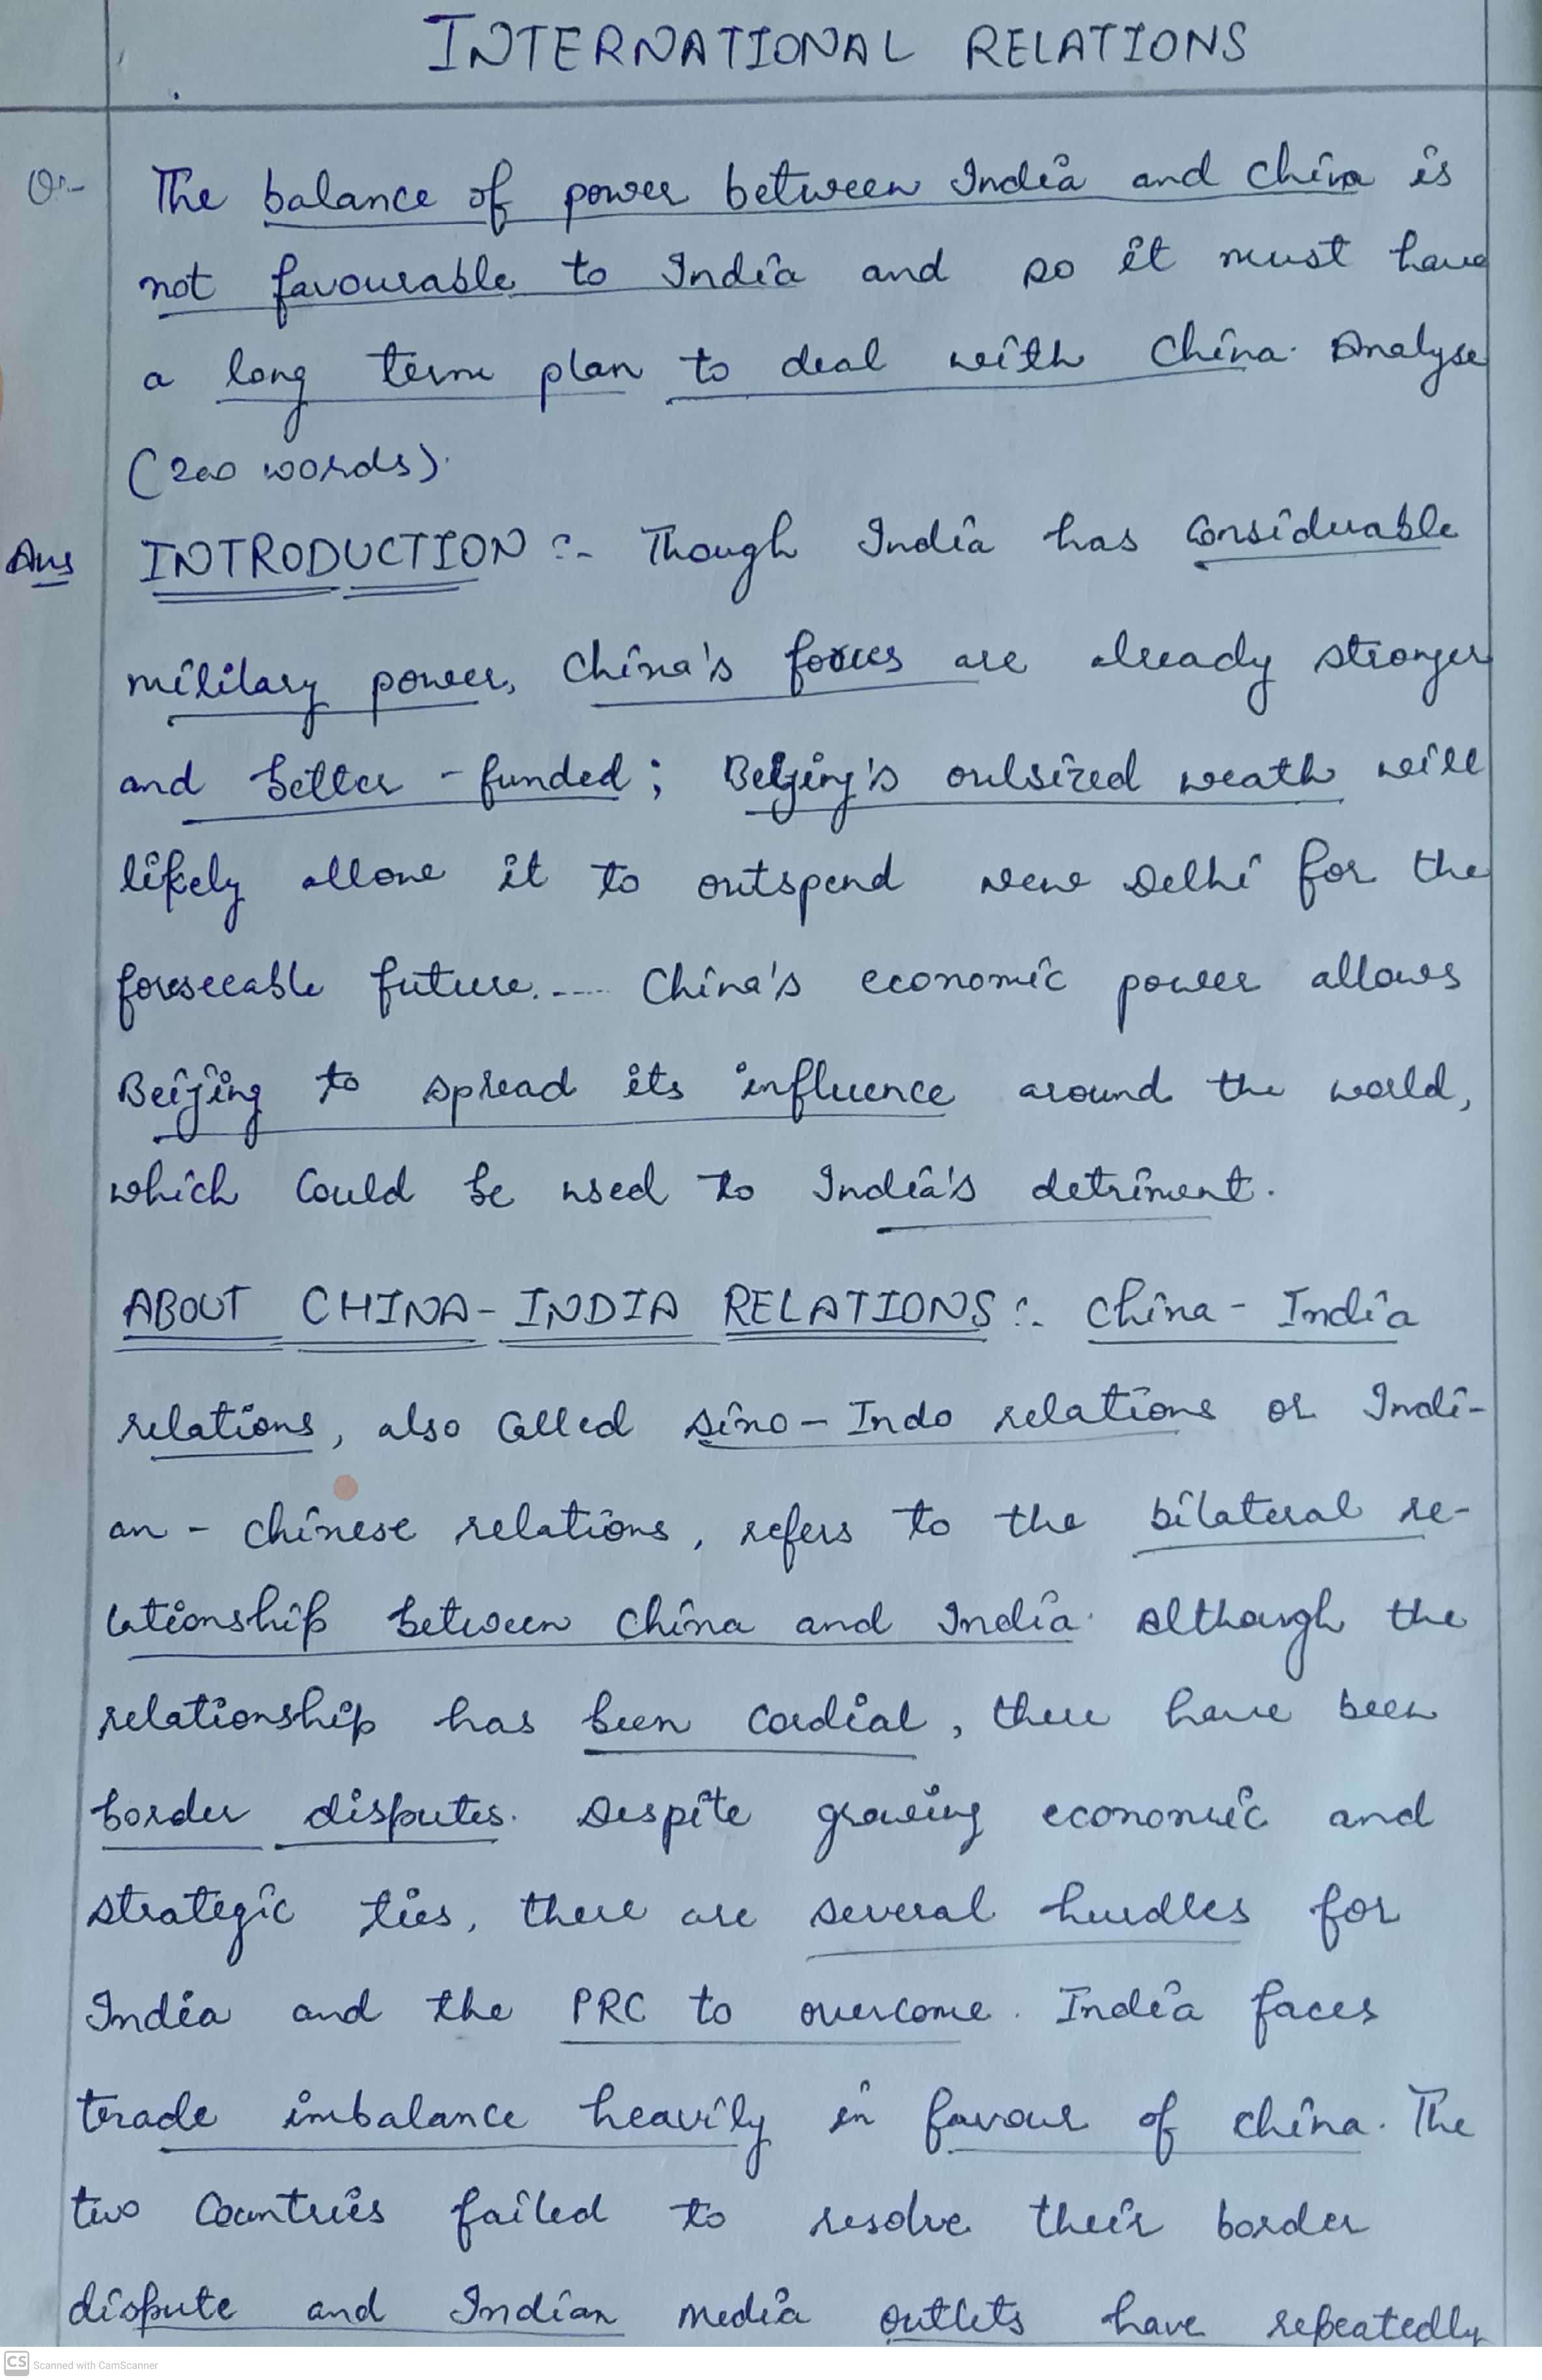 INTERNATIONAL RELATIONS
Q:- The balance of power between India and China is
not favourable to India and so it must have
a long term plan to deal with China. Analyse
(200 words).
Ans INTRODUCTION :- Though India has considerable
military power, China's forces are already stronger
and better - funded ; Beijing's outsized weath will
likely allow it to outspend New Delhi for the
foreseeable future.---- China's economic power allows
Beijing to spread its influence around the world,
which could be used to India's detriment.
ABOUT CHINA-INDIA RELATIONS :- China - India
relations, also called Sino - Indo relations or Indi-
an - Chinese relations, refers to the bilateral re-
lationship between China and India. Although the
relationship has been cordial, there have been
border disputes. Despite growing economic and
strategic ties, there are several hurdles for
India and the PRC to overcome. India faces
trade imbalance heavily in favour of China. The
two Countries failed to resolve their border
dispute and Indian media outlets have repeatedly
CS Scanned with CamScanner